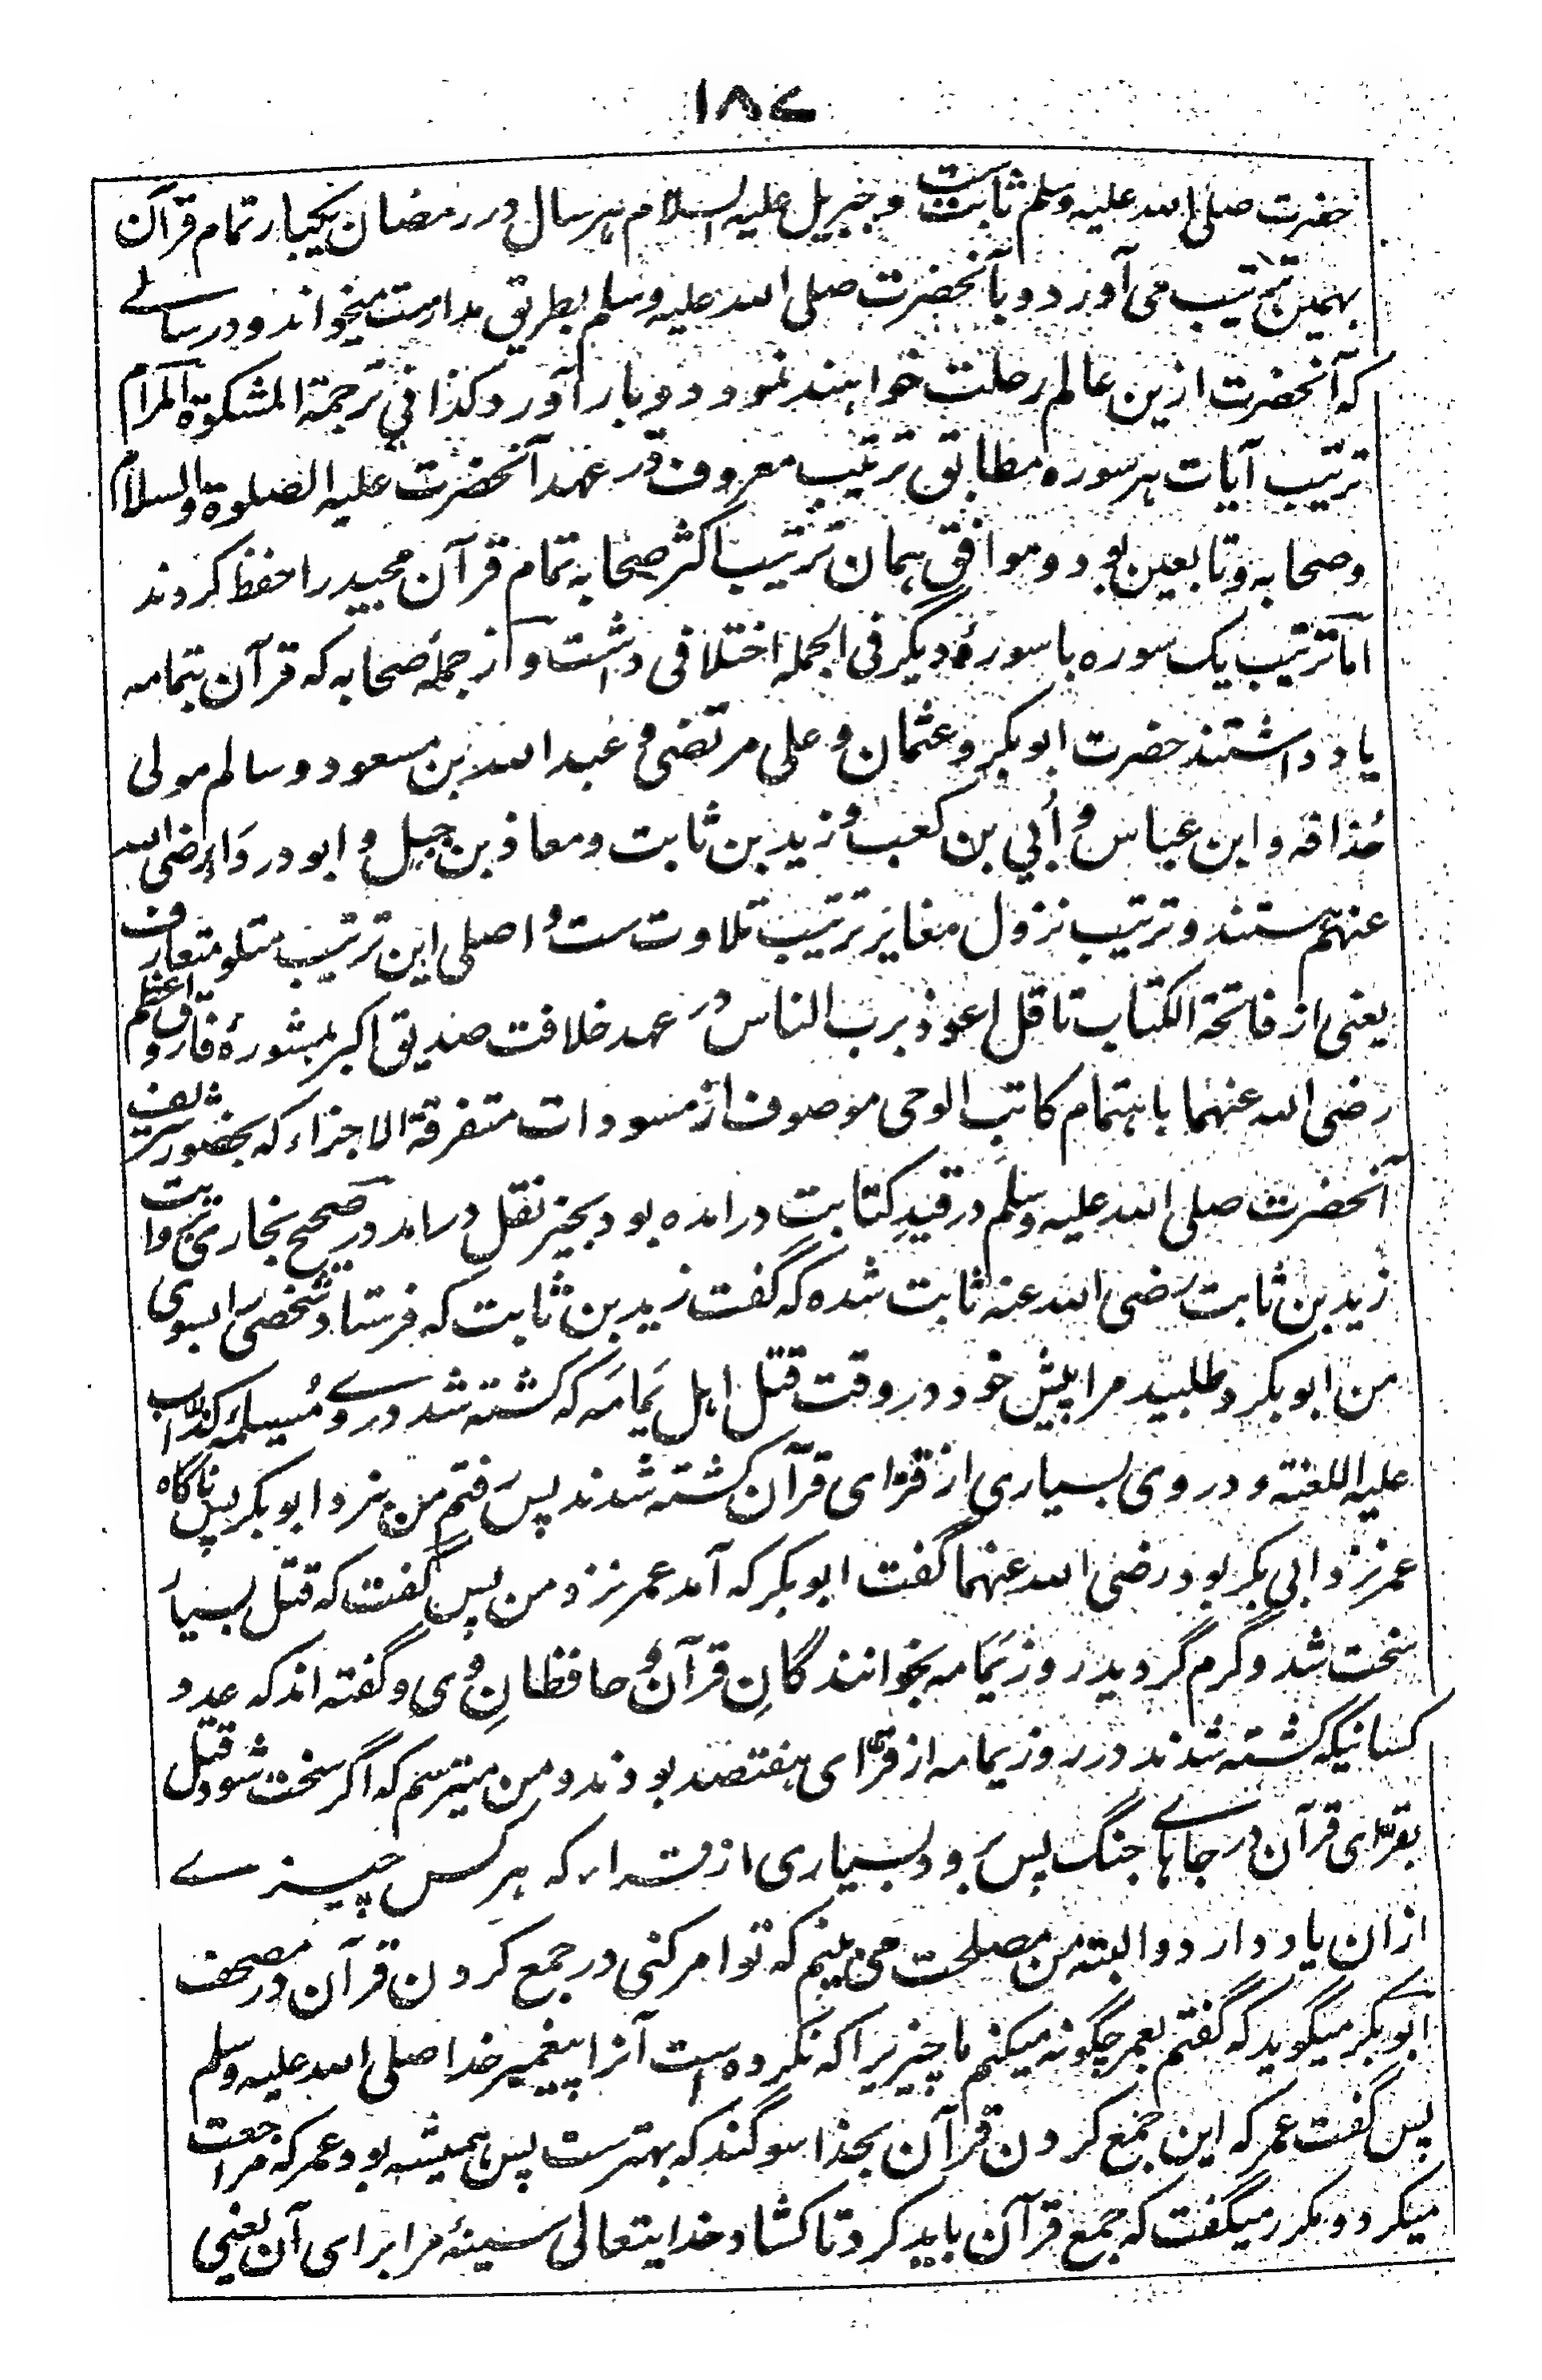 ۱۸۷
حضرت صلی الله علیه وسلم ثابت ست و جبریل علیه السلام هر سال در رمضان یکبار تمام قرآن
بهمین ترتیب می آورد و بآنحضرت صلی الله علیه وسلم بطریق مدارست میخواند و در سالے
که آنحضرت ازین عالم رحلت خواهند نمود دو بار آورد کذا فی ترجمة المشکوة المرام
ترتیب آیات هر سوره مطابق ترتیب معروف در عهد آنحضرت علیه الصلوة والسلام
و صحابه و تابعین بود و موافق همان ترتیب اکثر صحابه تمام قرآن مجید را حفظ کردند
اما ترتیب یک سوره با سورهٔ دیگر فی الجمله اختلافی داشت و از جملهٔ صحابه که قرآن بتمامه
یاد داشتند حضرت ابوبکر و عثمان و علی مرتضی و عبدالله بن مسعود و سالم مولی
حُذاقه و ابن عباس و أُبي بن کعب و زید بن ثابت و معاذ بن جبل و ابودرداء رضی الله
عنهم هستند و ترتیب نزول مغایر ترتیب تلاوت ست و اصلی این ترتیب متلو متعارف
یعنی از فاتحة الکتاب تا قل اعوذ برب الناس در عهد خلافت صدیق اکبر بمشورهٔ فاروق اعظم
رضی الله عنهما باهتمام کاتب الوحی موصوف از مسودات متفرقة الاجزاء که بحضور شریف
آنحضرت صلی الله علیه وسلم در قیدِ کتابت درامده بود بحیز نقل درامد در صحیح بخاری بروایت
زید بن ثابت رضی الله عنه ثابت شده که گفت زید بن ثابت که فرستاد شخصی را بسوی
من ابوبکر و طلبید مرا پیش خود در وقت قتل اهل یَمامَه که کشته شد در وے مُسیلمهٔ کذاب
علیه اللعنته و در وی بسیاری از قرّای قرآن کشته شدند پس رفتم من نزد ابوبکر پس ناگاه
عمر نزد ابی بکر بود رضی الله عنهما گفت ابوبکر که آمد عمر نزد من پس گفت که قتل بسیار
سخت شد و گرم گردید در روز یَمامه بخوانندگانِ قرآن و حافظانِ وی و گفته اند که عدد
کسانیکه کشته شدند در روز یمامه از قرّای هفتصد بودند و من میترسم که اگر سخت شود قتل
بقرّای قرآن در جاهاے جنگ پس رود بسیاری از قراء که هر کس چیزے
ازان یاد دارد و البته من مصلحت می بینم که تو امر کنی در جمع کردن قرآن در مصحف
ابوبکر میگوید که گفتم بعمر چگونه میکنم ما چیزیرا که نکرده است آنرا پیغمبر خدا صلی الله علیه وسلم
پس گفت عمر که این جمع کردن قرآن بخدا سوگند که بهتر ست پس همیشه بود عمر که مراجعت
میکرد و مکرر میگفت که جمع قرآن باید کرد تا کشاد خدایتعالی سینهٔ مرا برای آن یعنی